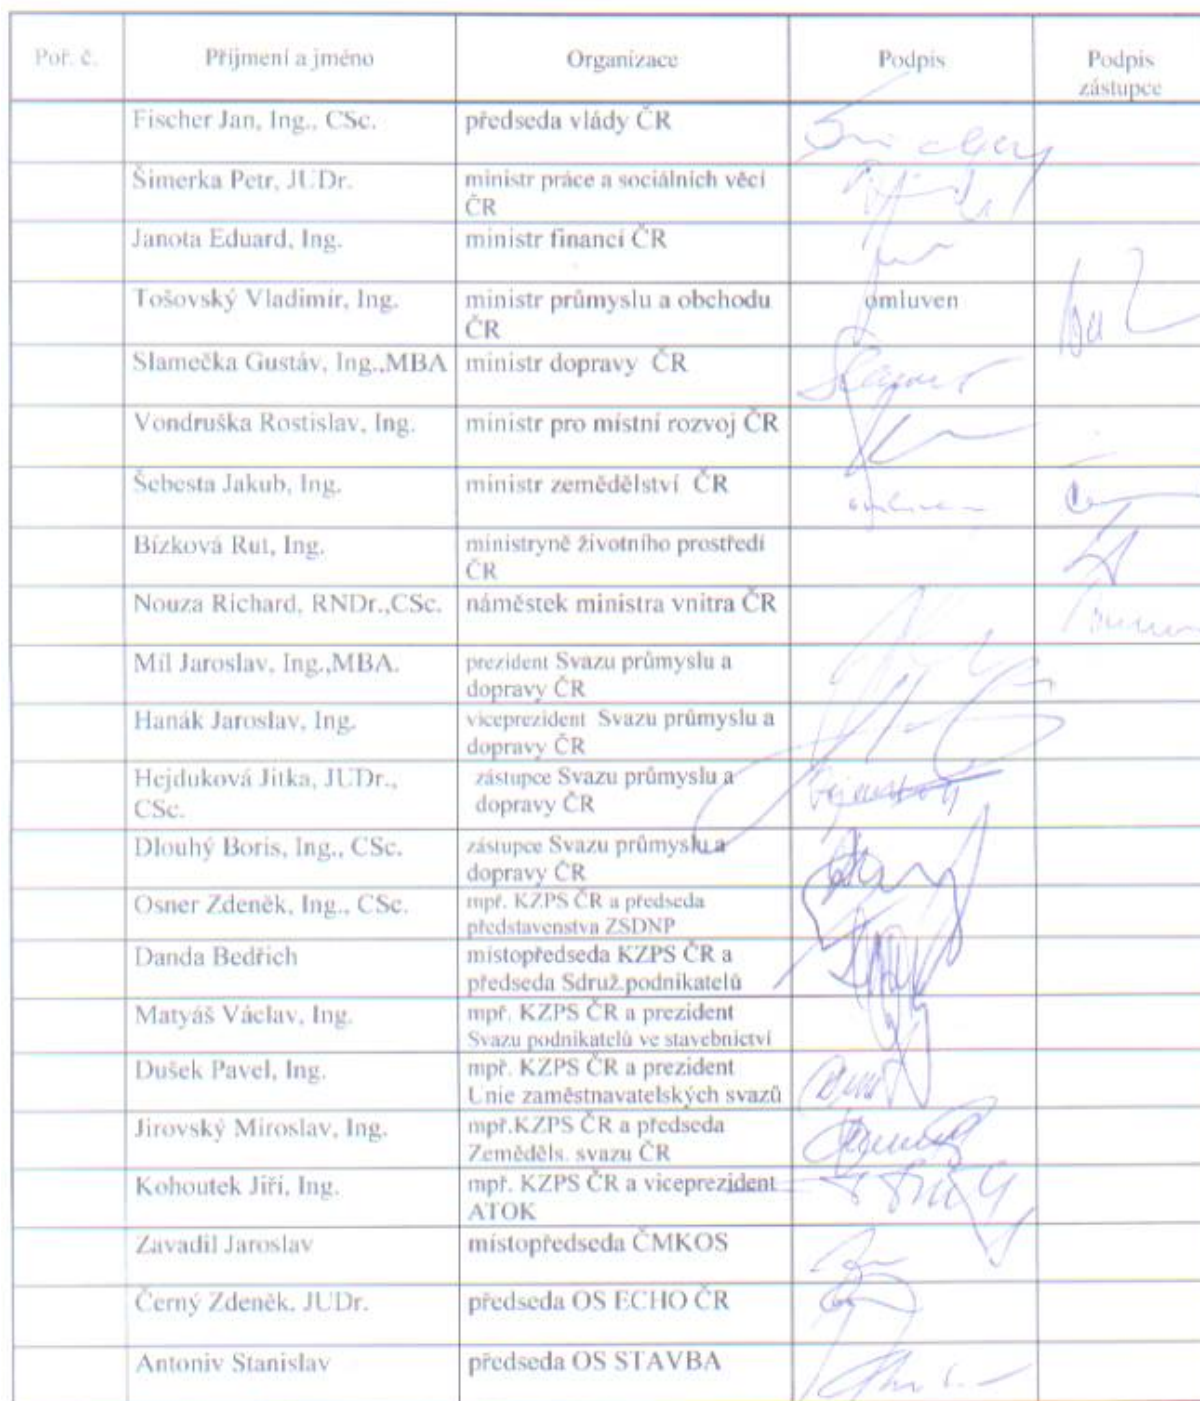 Poř. č.
Příjmení a jméno
Organizace
Podpis
Podpis
zástupce
Fischer Jan, Ing., CSc.
předseda vlády ČR
Šimerka Petr, JUDr.
ministr práce a sociálních věcí
ČR
Janota Eduard, Ing.
ministr financí ČR
Tošovský Vladimír, Ing.
ministr průmyslu a obchodu
ČR
omluven
Slamečka Gustáv, Ing.,MBA
ministr dopravy ČR
Vondruška Rostislav, Ing.
ministr pro místní rozvoj ČR
Šebesta Jakub, Ing.
ministr zemědělství ČR
omluven
Bízková Rut, Ing.
ministryně životního prostředí
ČR
Nouza Richard, RNDr.,CSc.
náměstek ministra vnitra ČR
Míl Jaroslav, Ing.,MBA.
prezident Svazu průmyslu a
dopravy ČR
Hanák Jaroslav, Ing.
viceprezident Svazu průmyslu a
dopravy ČR
Hejduková Jitka, JUDr.,
CSc.
zástupce Svazu průmyslu a
dopravy ČR
Dlouhý Boris, Ing., CSc.
zástupce Svazu průmyslu a
dopravy ČR
Osner Zdeněk, Ing., CSc.
mpř. KZPS ČR a předseda
představenstva ZSDNP
Danda Bedřich
místopředseda KZPS ČR a
předseda Sdruž.podnikatelů
Matyáš Václav, Ing.
mpř. KZPS ČR a prezident
Svazu podnikatelů ve stavebnictví
Dušek Pavel, Ing.
mpř. KZPS ČR a prezident
Unie zaměstnavatelských svazů
Jirovský Miroslav, Ing.
mpř.KZPS ČR a předseda
Zeměděls. svazu ČR
Kohoutek Jiří, Ing.
mpř. KZPS ČR a viceprezident
ATOK
Zavadil Jaroslav
místopředseda ČMKOS
Černý Zdeněk, JUDr.
předseda OS ECHO ČR
Antoniv Stanislav
předseda OS STAVBA